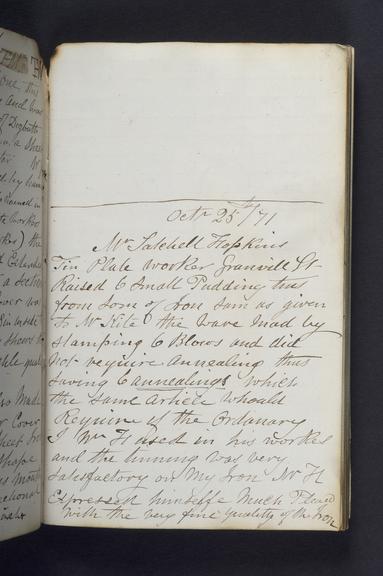 Octr 25th/71
Mr Satchell Hopkins
Tin Plate worker Granvill St
Raised 6 Small Pudding tins
from som of Iron sam as given
to Mr Kite the ware mad by
Stamping 6 Blows and did
not require annealing thus
saving 6 annealings which
the same article whould
Require if the Ordanary
I Wm H used in his workes
and the tinning was very
satisfactory on My Iron Mr H
Expressed himselfe Much Pleased
with the very fine quality of the Iron
one this
and
of Digbeth
in a
by
the
a section
over